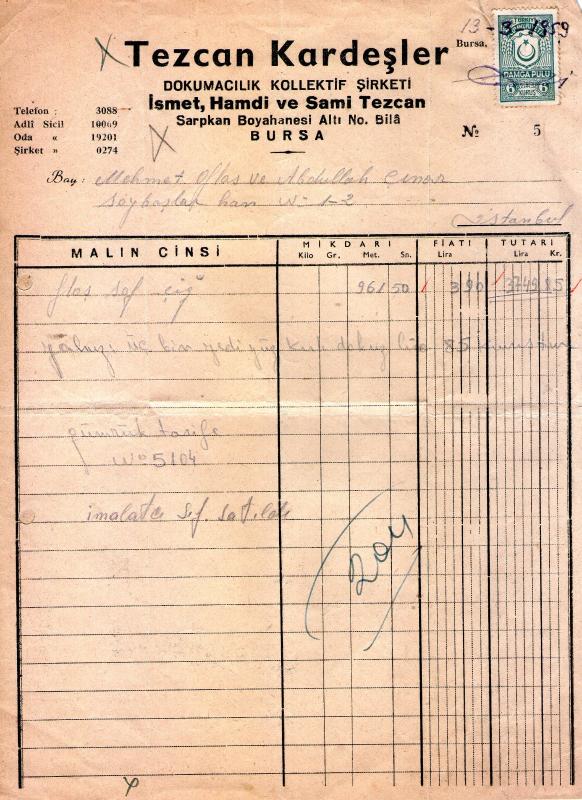 13-3-1959
Tezcan Kardeşler
Bursa,
DOKUMACILIK KOLLEKTİF ŞİRKETİ
İsmet, Hamdi ve Sami Tezcan
Sarpkan Boyahanesi Altı No. Bilâ
BURSA
DAMGA PULU
6 6
Telefon : 3088
Adlî Sicil 10069
Oda « 19201
Şirket » 0274
№ 5
Bay: Mehmet ve Abdullah Çınar
han No 1-2
İstanbul
MALIN CİNSİ MİKDARI FİATI TUTARI
Kilo Gr. Met. Sn. Lira Lira Kr.
Saf çiğ 961 50 3 90 3749 85
yalnız üç bin yedi yüz kırk dokuz lira 85 kuruştur
gümrük tarife
No 5104
imalatcı sıf. satıldı
204